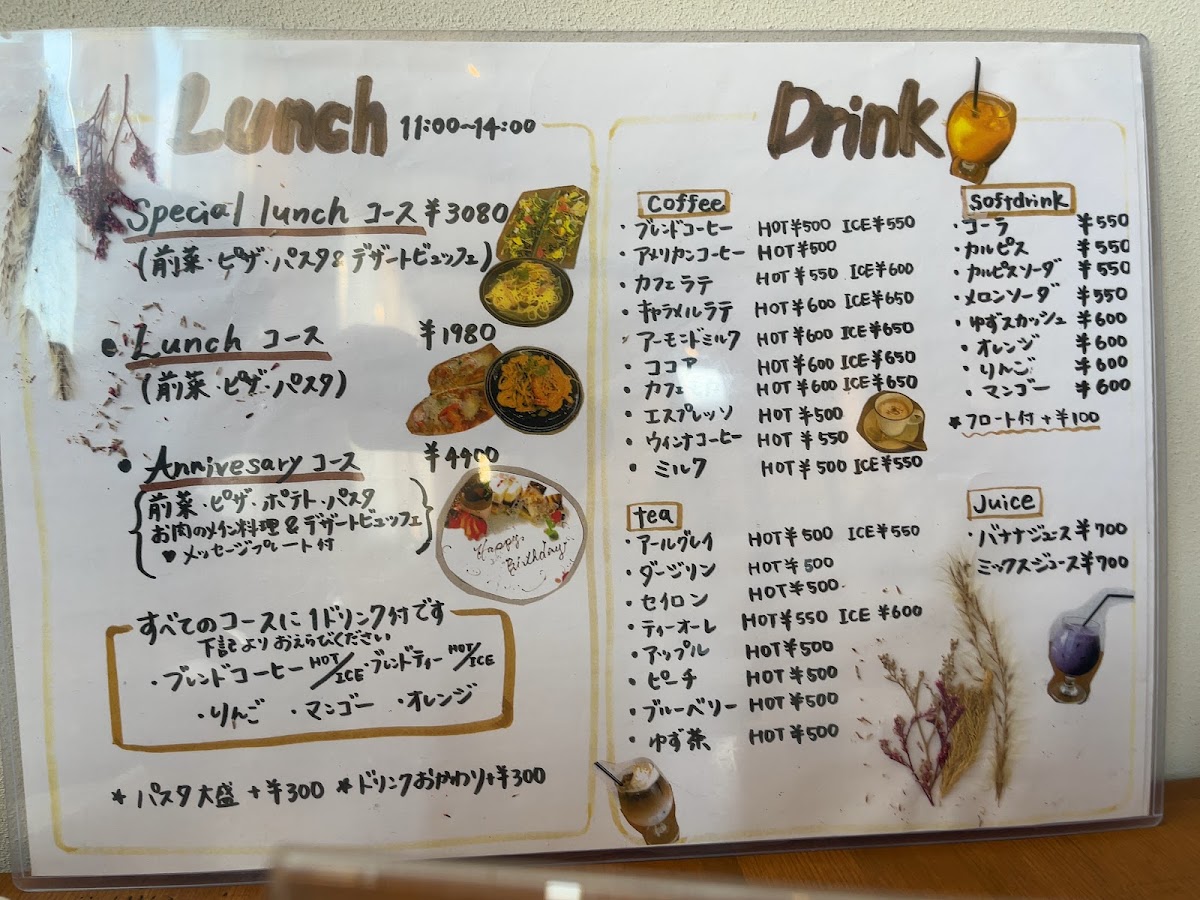 Lunch 11:00~14:00
Special lunch コース ¥3080
(前菜・ピザ・パスタ&デザートビュッフェ)
• Lunch コース ¥1980
(前菜・ピザ・パスタ)
• Annivesary コース ¥4400
前菜・ピザ・ポテト・パスタ
お肉のメイン料理&デザートビュッフェ
♥メッセージプレート付
Happy
Birthday
すべてのコースに1ドリンク付です
下記よりおえらびください
・ブレンドコーヒー HOT/ICE ・ブレンドティー HOT/ICE
・りんご ・マンゴー ・オレンジ
★ パスタ大盛 +¥300 ★ドリンクおかわり+¥300
Drink
Coffee
・ブレンドコーヒー HOT¥500 ICE¥550
・アメリカンコーヒー HOT¥500
・カフェラテ HOT¥550 ICE¥600
・キャラメルラテ HOT¥600 ICE¥650
・アーモンドミルク HOT¥600 ICE¥650
・ココア HOT¥600 ICE¥650
・カフェ HOT¥600 ICE¥650
・エスプレッソ HOT¥500
・ウィンナコーヒー HOT¥550
・ミルク HOT¥500 ICE¥550
tea
・アールグレイ HOT¥500 ICE¥550
・ダージリン HOT¥500
・セイロン HOT¥500
・ティーオーレ HOT¥550 ICE ¥600
・アップル HOT¥500
・ピーチ HOT¥500
・ブルーベリー HOT¥500
・ゆず茶 HOT¥500
Softdrink
・コーラ ¥550
・カルピス ¥550
・カルピスソーダ ¥550
・メロンソーダ ¥550
・ゆずスカッシュ ¥600
・オレンジ ¥600
・りんご ¥600
・マンゴー ¥600
★フロート付+¥100
Juice
・バナナジュース¥700
ミックスジュース¥700